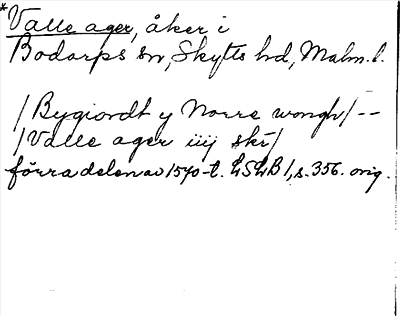 *Valle ager, åker i
Bodarps sn, Skytts hd, Malm. l.
/Bygiordt y Norre wongh/--
/Valle ager iiij skr/
förra delen av 1540-t. LSLB 1, s. 356. orig.